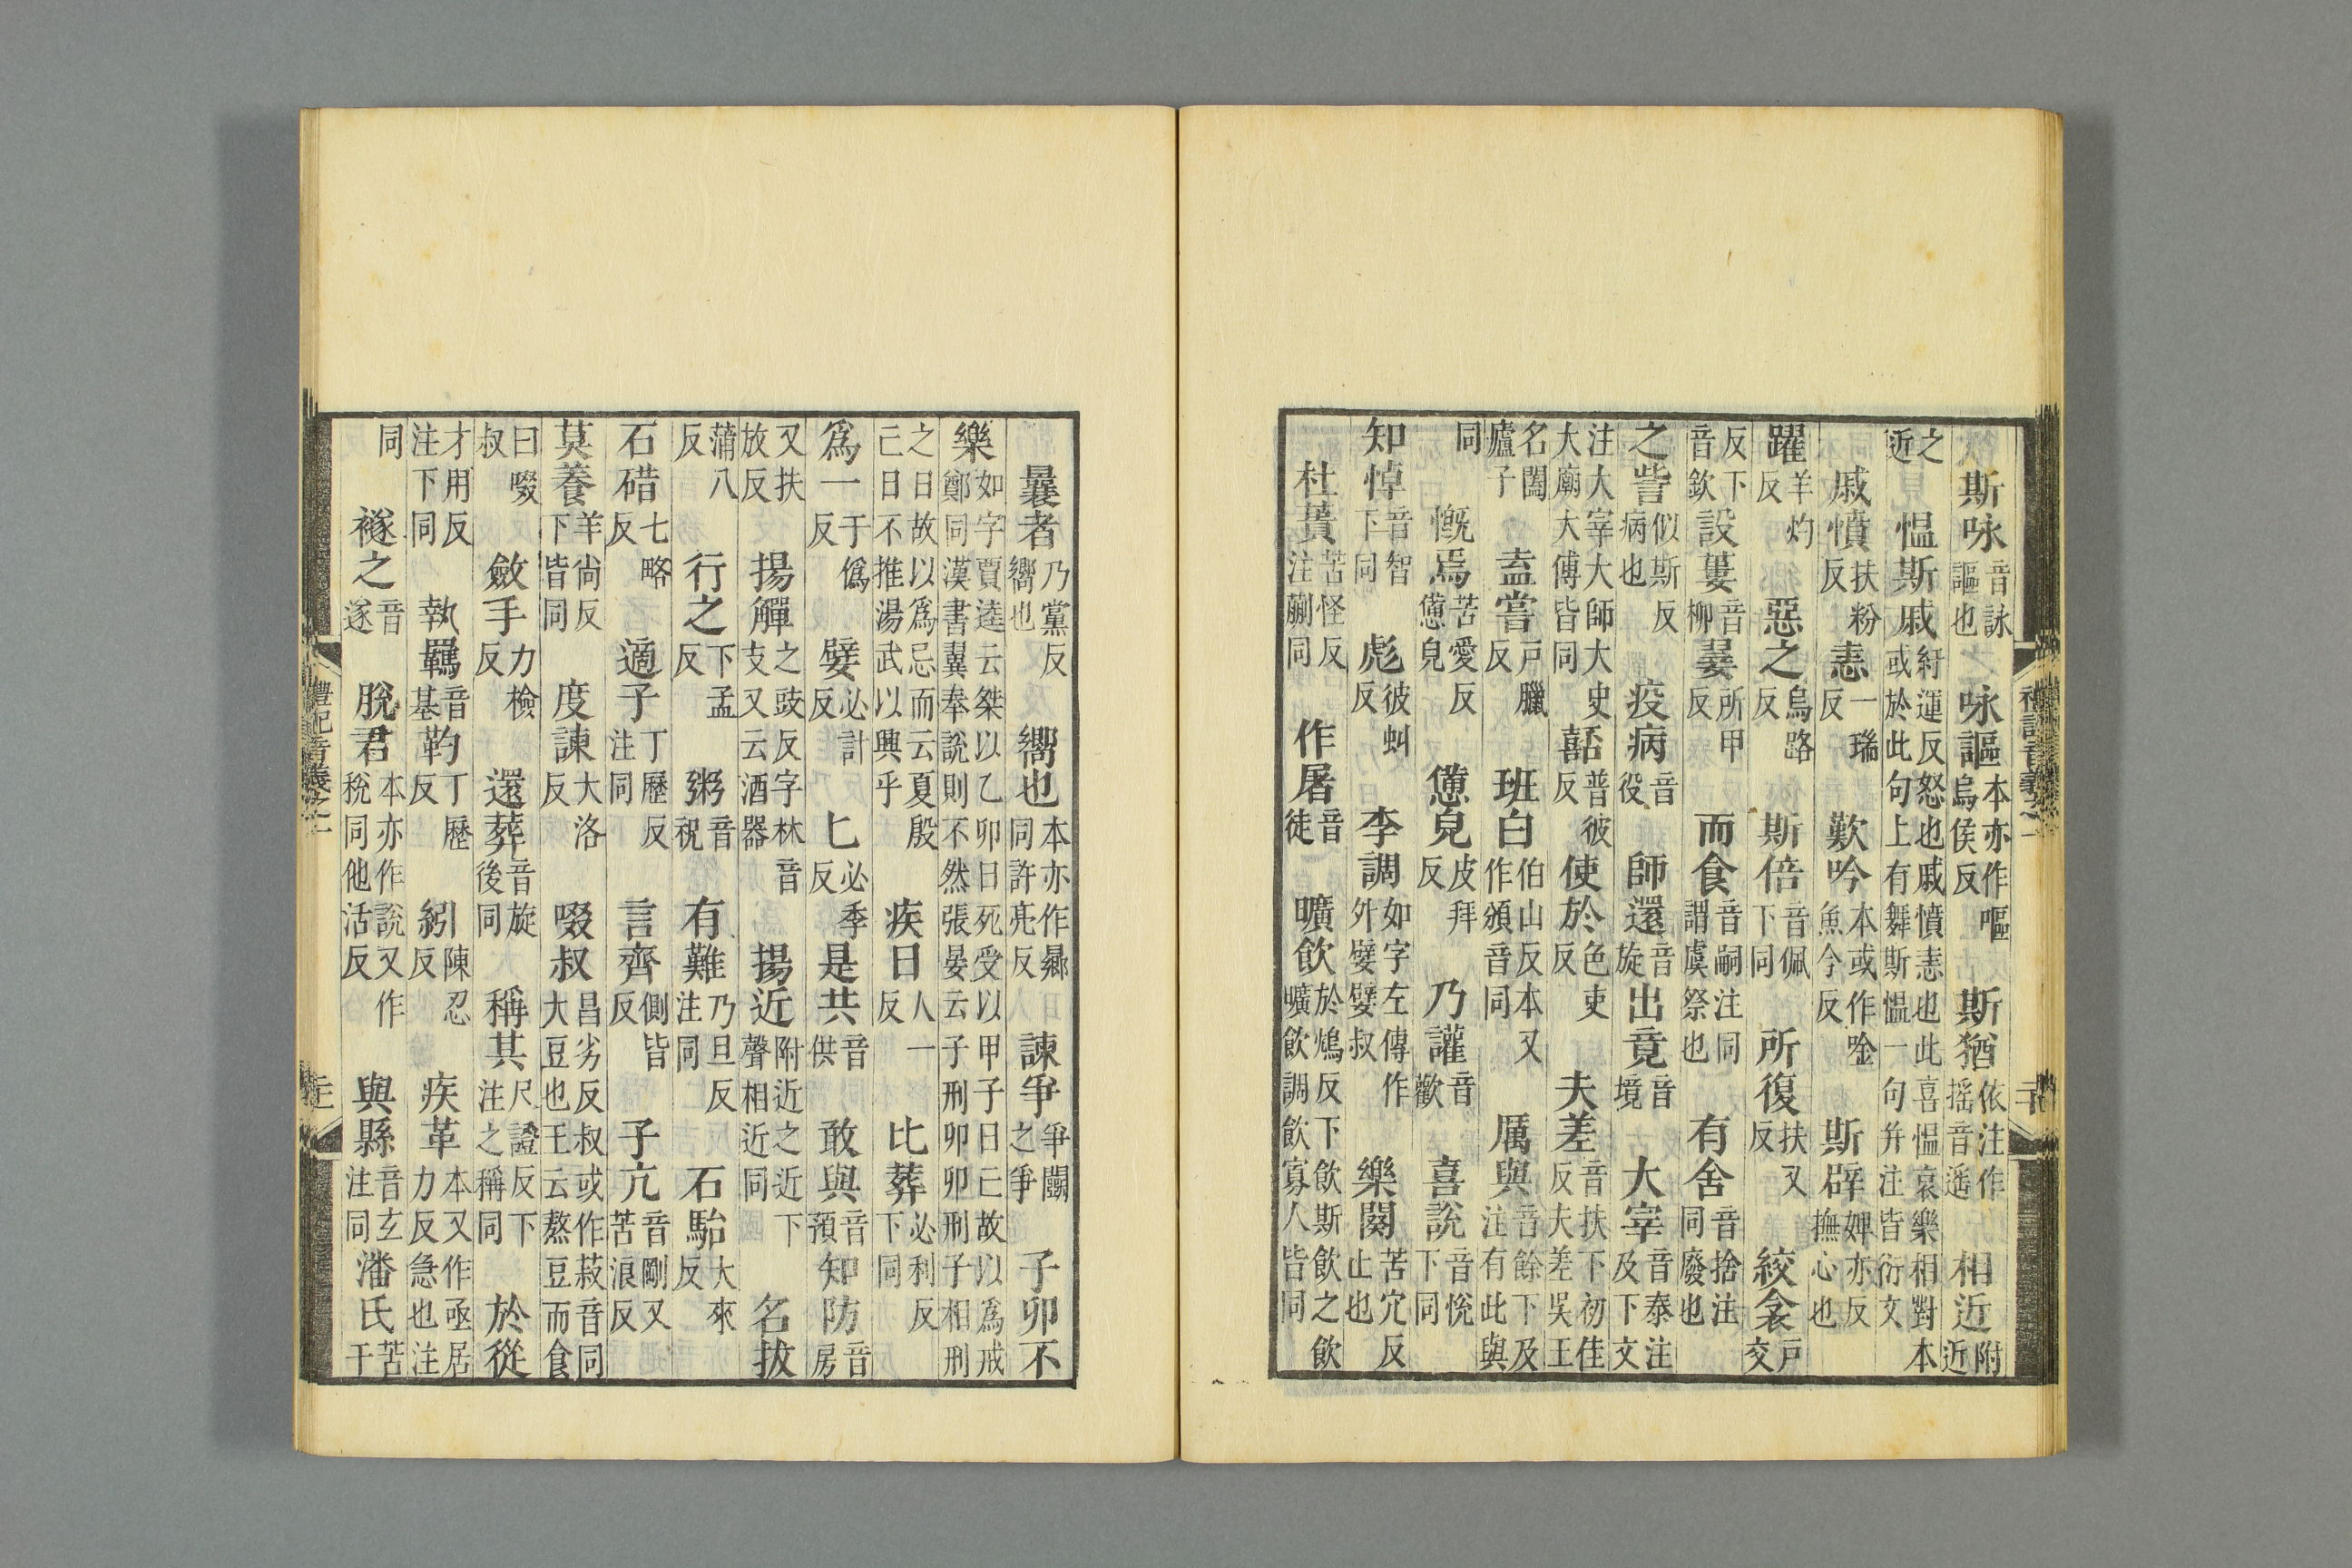 斯咏音詠謳也咏謳本亦作嘔烏侯反斯猶依注作搖音遙相近附近
之近慍斯戚紆運反怒也戚憤恚也此喜慍哀樂相對本或於此句上有舞斯慍一句并注皆衍文
戚憤扶粉反恚一瑞反歎吟本或作唫魚今反斯辟婢亦反撫心也
躍羊灼反惡之烏路反斯倍音佩下同所復扶又反絞衾戶交
反下音欽設蔞音柳翣所甲反而食音嗣注同謂虞祭也有舍音捨注同廢也
之訾似斯反病也疫病音役師還音旋出竟音境大宰音泰注及下文
注大宰大師大史大廟大傅皆同嚭普彼反使於色吏反夫差音扶下初佳反夫差吳王
名闔廬子盍嘗戶臘反班白伯山反本又作頒音同厲與音餘下及注有此與
同慨焉苦愛反憊皃憊皃皮拜反乃讙音歡喜說音悅下同
知悼音智下同彪彼虯反李調如字左傳作外嬖嬖叔樂闋苦穴反止也
杜蕢苦怪反注蒯同作屠音徒曠飲於鴆反下飲斯飲之飲曠飲調飲寡人皆同
曩者乃黨反嚮也嚮也本亦作曏同許亮反諫爭爭鬭之爭子卯不
樂如字賈逵云桀以乙卯日死受以甲子日亡故以爲戒鄭同漢書翼奉說則不然張晏云子刑卯卯刑子相刑
之日故以爲忌而云夏殷亡日不推湯武以興乎疾日人一反比葬必利反下同
爲一于僞反嬖必計反匕必季反是共音供敢與音預知防音房
又扶放反揚觶之豉反字林音支又云酒器揚近附近之近下聲相近同名拔
蒲八反行之下孟反粥音祝有難乃旦反注同石駘大來反
石碏七略反適子丁歷反注同言齊側皆反子亢音剛又苦浪反
莫養羊尚反下皆同度諫大洛反啜叔昌劣反叔或作菽音同大豆也王云熬豆而食
曰啜叔斂手力檢反還葬音旋後同稱其尺證反下注之稱同於從
才用反注下同執羈音基靮丁歷反紖陳忍反疾革本又作亟居力反急也注
同襚之音遂脫君本亦作說又作稅同他活反與縣音玄注同潘氏苦干
禮記音義之一